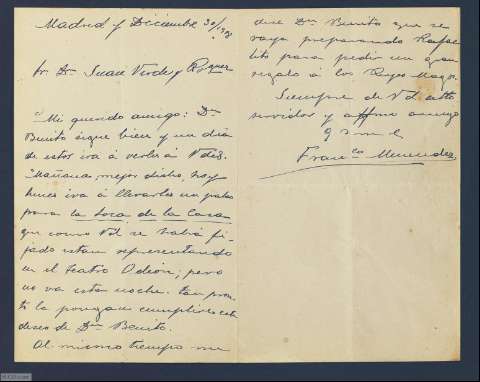 Madrid y Diciembre 30/19
Sr. Dn. Juan Verde y Roquer
"Mi querido amigo: Dn
Benito sigue bien y un dia
de estos irá á verlos á Vdes.
"Mañana, mejor dicho, hoy
lunes irá á llevarles un palco
para la Loca de la Casa
que como Vd se habrá fi-
jado estan representando
en el teatro Odeón; pero
no va esta noche. tan pron-
to la pongan cumpliré este
deseo de Dn Benito.
Al mismo tiempo me
dice Dn Benito que se
vaya preparando Rafae-
lito para pedir un gran
regalo á los Reyes Magos.
Siempre de Vd atto
servidor y affmo amigo
q s m e
Franco Menendez